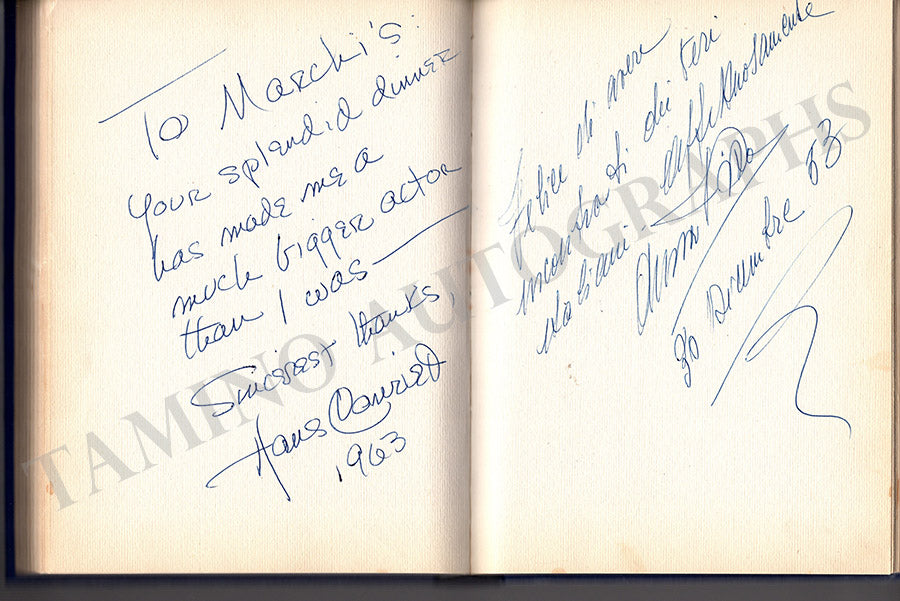 To Marchi's:
Your splendid dinner
has made me a
much bigger actor
than I was —
Sincerest thanks,
Hans Conried
1963
Felice di avere
incontrato di dei veri
italiani affettuosamente
30 Dicembre 63
TAMINO AUTOGRAPHS